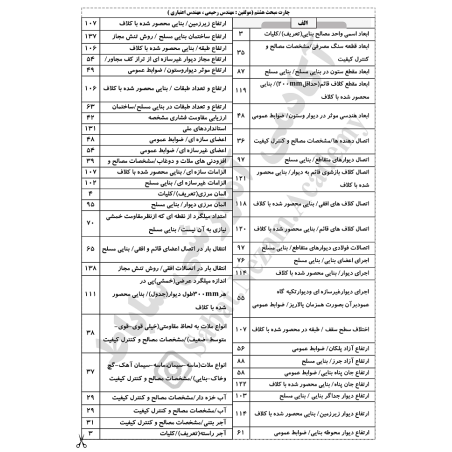 چارت مبحث هشتم (مولفین : مهندس رحیمی ، مهندس اعتباری )
الف
ابعاد اسمی واحد مصالح بنایی(تعریف)/کلیات ۳
ابعاد قطعه سنگ مصرفی/مشخصات مصالح و کنترل کیفیت ۳۵
ابعاد مقطع ستون در بنایی/ بنایی مسلح ۸۷
ابعاد مقطع کلاف قائم(حداقل۲۰۰mm)/ بنایی محصور شده با کلاف ۱۱۹
ابعاد هندسی موثر در دیوار وستون/ ضوابط عمومی ۴۸
اتصال دهنده ها/مشخصات مصالح و کنترل کیفیت ۳۶
اتصال دیوارهای متقاطع/ بنایی مسلح ۹۷
اتصال کلاف بازشوی قائم به دیوار/ بنایی محصور شده با کلاف ۱۲۱
اتصال کلاف های افقی/ بنایی محصور شده با کلاف ۱۱۸
اتصال کلاف های قائم/ بنایی محصور شده با کلاف ۱۲۰
اتصالات فولادی دیوارهای متقاطع/ بنایی مسلح ۹۷
اجرای اعضای بنایی/ بنایی مسلح ۷۶
اجرای دیوار/ بنایی محصور شده با کلاف ۱۱۴
اجرای دیوارغیرسازه ای ودیوارتکیه گاه عمودبرآن بصورت همزمان یالاریز/ ضوابط عمومی ۵۵
اختلاف سطح سقف / طبقه در محصور شده با کلاف ۱۰۷
ارتفاع آزاد پلکان/ ضوابط عمومی ۵۶
ارتفاع آزاد جرز/ بنایی مسلح ۸۸
ارتفاع جان پناه بنایی/ ضوابط عمومی ۵۸
ارتفاع جان پناه/ بنایی محصور شده با کلاف ۱۲۲
ارتفاع دیوار جداگر بنایی/ بنایی مسلح ۱۰۳
ارتفاع دیوار زیرزمین/ بنایی محصور شده با کلاف ۱۱۴
ارتفاع دیوار محوطه بنایی/ ضوابط عمومی ۶۱
ارتفاع زیرزمین/ بنایی محصور شده با کلاف ۱۰۷
ارتفاع ساختمان بنایی مسلح / روش تنش مجاز ۱۳۷
ارتفاع طبقه/ بنایی محصور شده با کلاف ۱۰۶
ارتفاع مجاز دیوار غیرسازه ای از تراز کف مجاور/ ۵۴
ارتفاع موثر دیواروستون/ ضوابط عمومی ۴۹
ارتفاع و تعداد طبقات / بنایی محصور شده با کلاف ۱۰۶
ارتفاع و تعداد طبقات در بنایی مسلح/ساختمان ۶۳
ارزیابی مقاومت فشاری مشخصه ۴۲
استانداردهای ملی ۱۳۱
اعضای سازه ای/ ضوابط عمومی ۴۸
اعضای غیرسازه ای/ ضوابط عمومی ۵۴
افزودنی های ملات و دوغاب/مشخصات مصالح و ۳۹
الزامات سازه ای/ بنایی محصور شده با کلاف ۱۰۷
الزامات غیرسازه ای/ بنایی مسلح ۱۰۲
المان مرزی(تعریف)/کلیات ۴
المان مرزی دیوار/ بنایی مسلح ۹۵
امتداد میلگرد از نقطه ای که ازنظرمقاومت خمشی نیازی به آن نیست/ بنایی مسلح ۷۰
انتقال بار در اتصال اعضای قائم و افقی/ بنایی مسلح ۶۵
انتقال بار در اتصالات افقی/ روش تنش مجاز ۱۳۸
اندازه میلگرد عرضی(خمشی)پی در هر۳۰۰mmطول دیوار(جدول)/ بنایی محصور شده با کلاف ۱۱۱
انواع ملات به لحاظ مقاومتی(خیلی قوی-قوی-متوسط-ضعیف)/مشخصات مصالح و کنترل کیفیت ۳۸
انواع ملات(ماسه-سیمان،ماسه-سیمان آهک-گچ وخاک-بنایی)/مشخصات مصالح و کنترل کیفیت ۳۷
آب خزه دار/مشخصات مصالح و کنترل کیفیت ۲۹
آب/مشخصات مصالح و کنترل کیفیت ۲۹
آجر بتنی/مشخصات مصالح و کنترل کیفیت ۳۱
آجر راسته(تعریف)/کلیات ۳